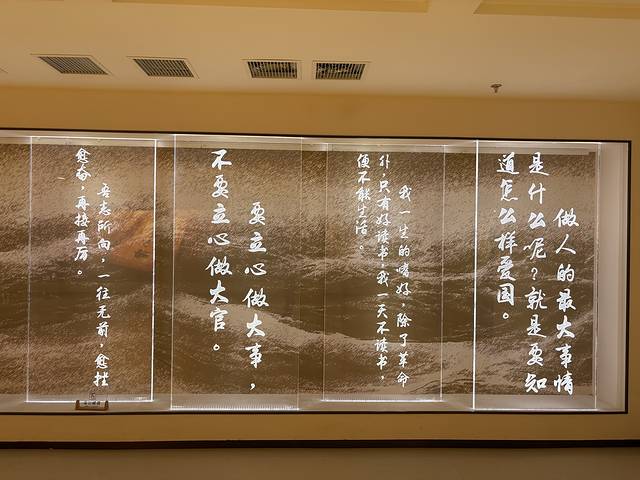 做人的最大事情
是什么呢？就是要知
道怎么样爱国。
我一生的嗜好，除了革命
外，只有好读书，我一天不读书，
便不能生活。
要立心做大事，
不要立心做大官。
吾志所向，一往无前，愈挫
愈奋，再接再厉。